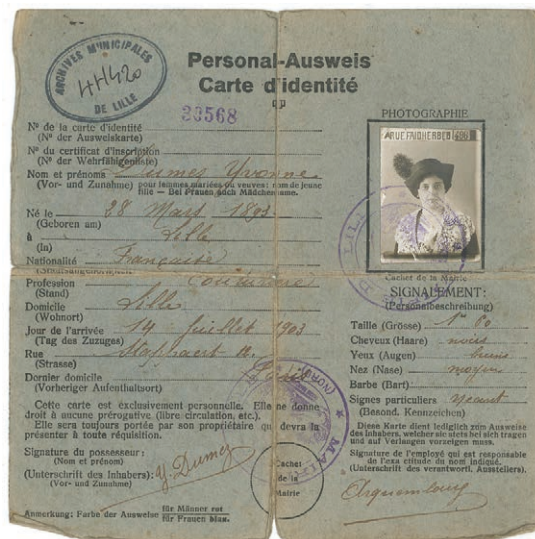 ARCHIVES MUNICIPALES
4H420
DE LILLE
Personal-Ausweis
Carte d'identité
N° de la carte d'identité
(N° der Ausweiskarte)
N° du certificat d'inscription
(N° der Wehrfähigenliste)
Nom et prénoms Dumez Yvonne
(Vor- und Zunahme) pour femmes mariées ou veuves: nom de jeune
fille — Bei Frauen auch Mädchenname.
Né le 28 Mars 1893
(Geboren am)
à Lille
(In)
Nationalité Française
Profession
(Stand)
Domicile Lille
(Wohnort)
Jour de l'arrivée 14 Juillet 1903
(Tag des Zuzuges)
Rue
(Strasse)
Dernier domicile
(Vorheriger Aufenthaltsort)
Cette carte est exclusivement personnelle. Elle ne donne
droit à aucune prérogative (libre circulation, etc.).
Elle sera toujours portée par son propriétaire qui devra la
présenter à toute réquisition.
Signature du possesseur:
(Nom et prénom)
Y. Dumez
(Unterschrift des Inhabers):
(Vor- und Zunahme)
Anmerkung: Farbe der Ausweise für Männer rot
für Frauen blau.
Cachet
de la
Mairie
PHOTOGRAPHIE
Cachet de la Mairie
SIGNALEMENT:
(Personalbeschreibung)
Taille (Grösse) 1m 60
Cheveux (Haare) noirs
Yeux (Augen) bruns
Nez (Nase) moyen
Barbe (Bart)
Signes particuliers néant
(Besond. Kennzeichen)
Diese Karte dient lediglich zum Ausweise
des Inhabers, welcher sie stets bei sich tragen
und auf Verlangen vorzeigen muss.
Signature de l'employé qui est responsable
de l'exactitude du nom indiqué.
(Unterschrift des verantwortl. Ausstellers).